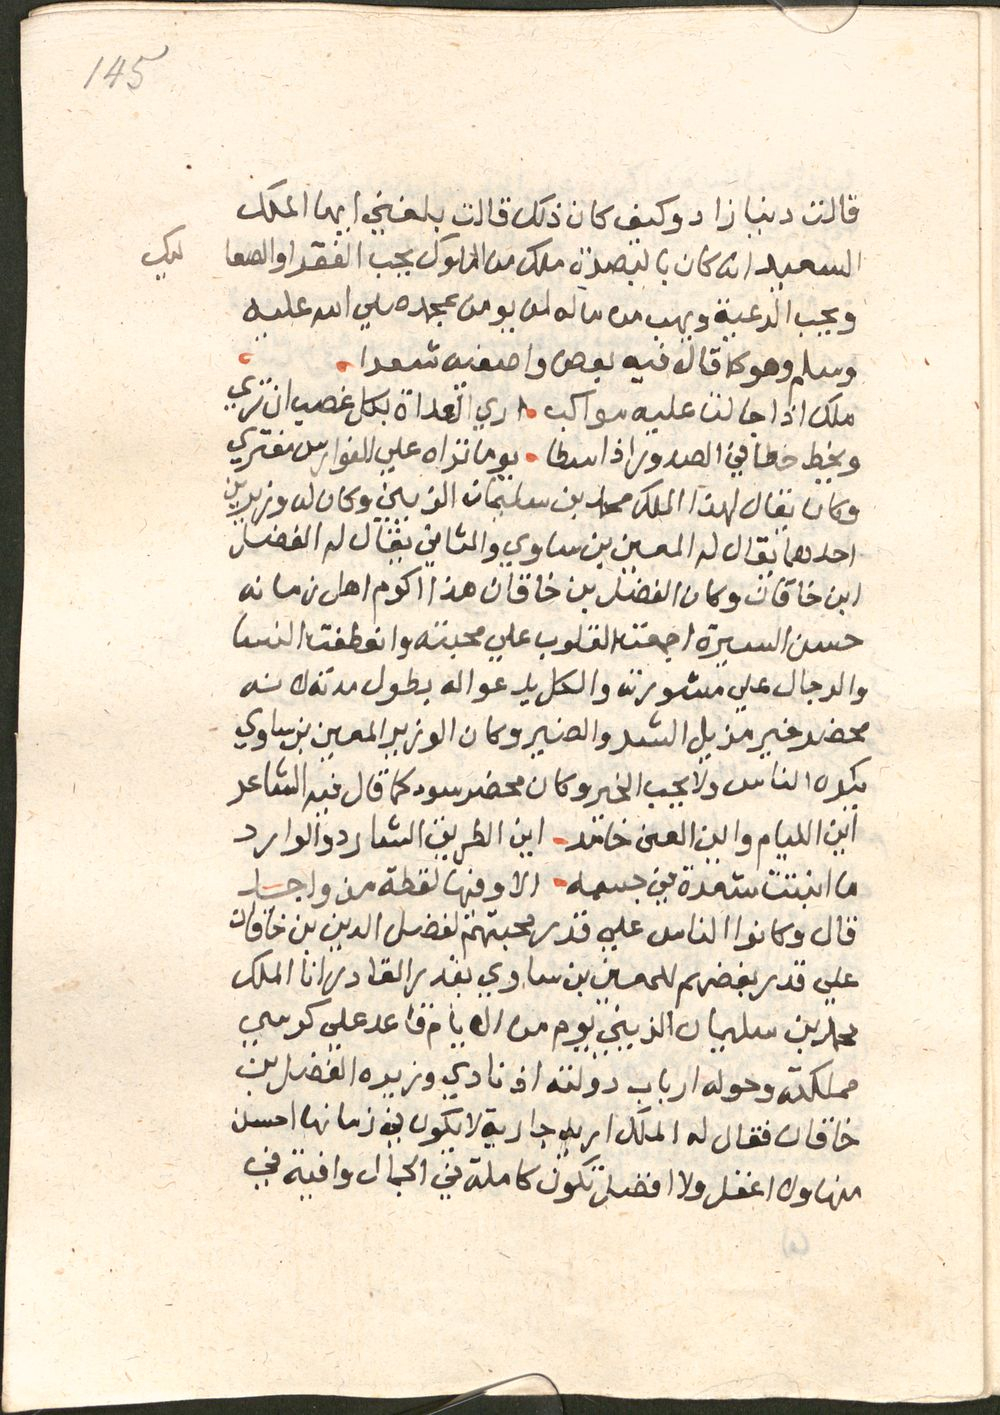 145
قالت دينا زاد وكيف كان ذلك قالت بلغني ايها الملك
السعيد انه كان بالبصرة ملك من الملوك يحب الفقرا والصعا ليك
ويحب الرعية ويهب من ماله لمن يومن بمحمد صلي الله عليه
وسلم وهو كما قال فيه بعض واصفيه شعرا
ملك اذا جالت عليه مواكب اري العداة بكل غصب ان تري
ويخط خطا في الصدور اذا سطا يوما تراه علي الفوارس مفتري
وكان يقال لهذا الملك محمد بن سليمان الزيني وكان له وزيرين
احدهما يقال له المعين بن ساوي والثاني يقال له الفضل
ابن خاقان وكان الفضل بن خاقان هذا اكرم اهل زمانه
حسن السيرة اجمعت القلوب علي محبته وانعطفت النسا
والرجال علي مشورته والكل يدعوا له بطول مدته لانه
محضر خير مزيل الشر والضير وكان الوزير المعين بن ساوي
يكره الناس ولا يحب الخير وكان محضر سوء كما قال فيه الشاعر
ابن الليام وابن العين خامد ابن الطريق الشارد والوارد
ما انبتت شعرة في جسمه الا وفيها نقطة من واحد
قال وكانوا الناس علي قدر محبتهم لفضل الدين بن خاقان
علي قدر بغضهم للمعين بن ساوي بقدر القادر انا الملك
محمد بن سليمان الزيني يوم من الايام قاعد علي كرسي
مملكته وحوله ارباب دولته اذ نادي وزيره الفضل بن
خاقان فقال له الملك اريد جارية لا يكون في زمانها احسن
منها ولا اعقل ولا افضل تكون كاملة في الجمال وافية في